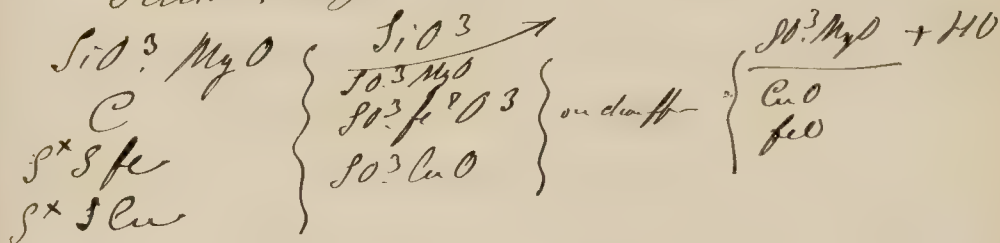 SiO³. MgO
C
S^x S fe
S^x S Cu
SiO³
SO.³ MgO
SO³. fe²O³
SO³. CuO
on chauffe
SO³. MgO + HO
CuO
feO